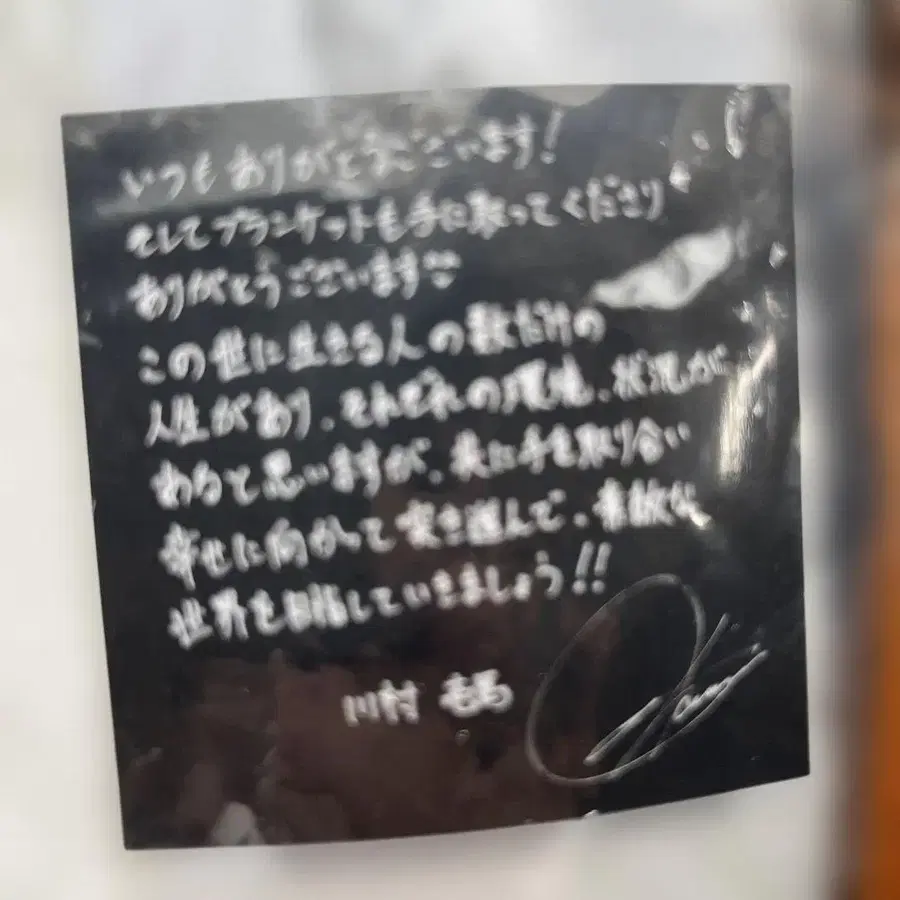 いつもありがとうございます!
そしてブランケットも手に取ってくださり
ありがとうございます
この世に生きる人の数だけの
人生があり、それぞれの環境、状況が
あると思いますが、共に手を取り合い
幸せに向かって突き進んで、素敵な
世界を目指していきましょう!!
川村